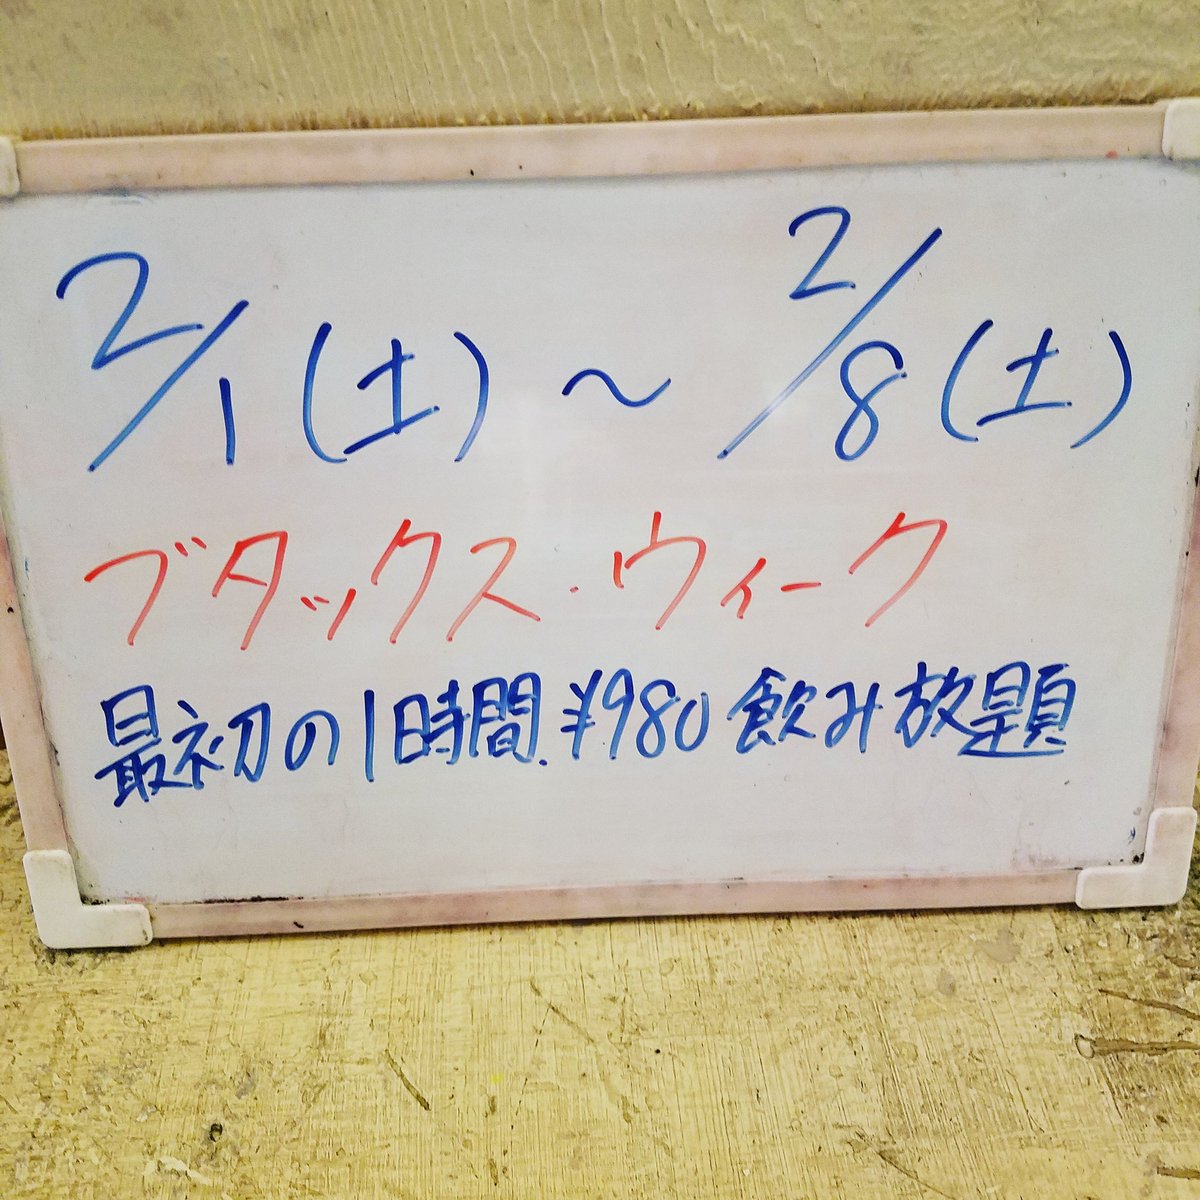 2/1(土)～2/8(土)
ブタックス・ウィーク
最初の1時間.¥980飲み放題